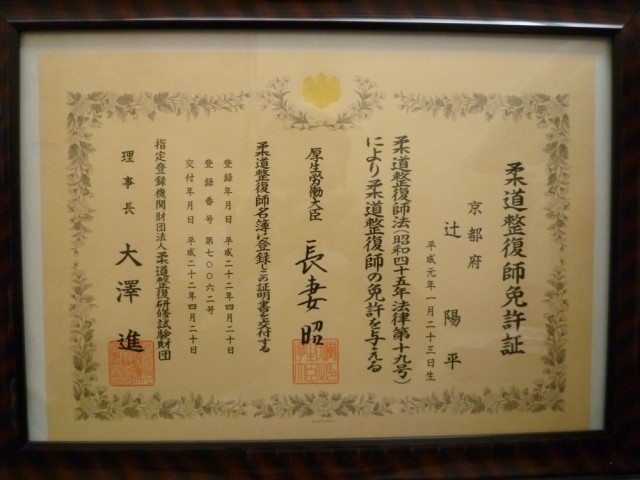 柔道整復師免許証
京都府
辻陽平
平成元年一月二十三日生
柔道整復師法(昭和四十五年法律第十九号)
により柔道整復師の免許を与える
厚生労働大臣 長妻昭
柔道整復師名簿に登録しこの証明書を交付する
登録年月日 平成二十二年四月二十日
登録番号 第七〇〇六二号
交付年月日 平成二十二年四月二十日
指定登録機関財団法人柔道整復研修試験財団
理事長 大澤進